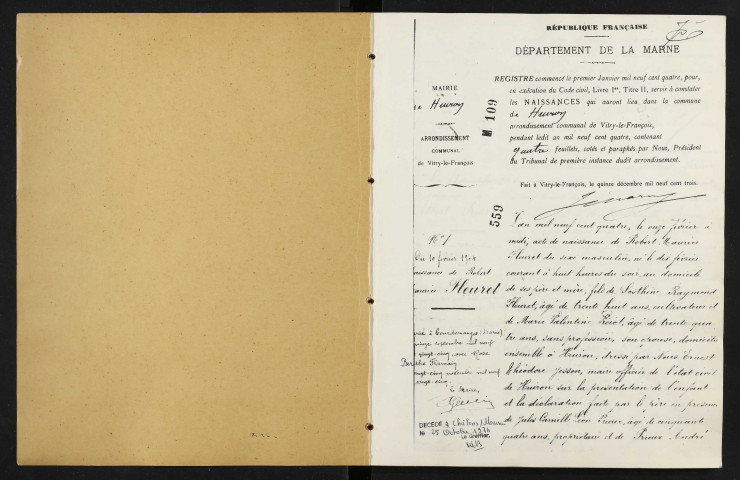 RÉPUBLIQUE FRANÇAISE
DÉPARTEMENT DE LA MARNE
MAIRIE
de Heuron
ARRONDISSEMENT
COMMUNAL
de Vitry-le-François
M 109
559
REGISTRE commencé le premier Janvier mil neuf cent quatre, pour,
en exécution du Code civil, Livre Ier, Titre II, servir à constater
les NAISSANCES qui auront lieu dans la commune
de Heuron
arrondissement communal de Vitry-le-François,
pendant ledit an mil neuf cent quatre, contenant
quatre feuillets, cotés et paraphés par Nous, Président
du Tribunal de première instance dudit arrondissement.
Fait à Vitry-le-François, le quinze décembre mil neuf cent trois.
No 1
Du 10 février 1904
naissance de Robert
Maurice Fleuret
L'an mil neuf cent quatre, le onze février à
midi, acte de naissance de Robert Maurice
Fleuret du sexe masculin, né le dix février
courant à huit heures du soir, au domicile
de ses père et mère, fils de Raymond
Fleuret, âgé de trente huit ans, cultivateur et
de Marie Valentine, âgé de trente qua
tre ans, sans profession, son épouse, domiciliés
ensemble à Heuron, dressé par Nous Ernest
Théodore Jesson, maire officier de l'état civil
de Heuron sur la présentation de l'enfant
et la déclaration faite par le père en présence
de Jules Camille Léon, âgé de cinquante
quatre ans, propriétaire et de André
novembre mil neuf
vingt-cinq, avec Marie
Berthe
vingt-cinq novembre mil neuf
vingt-cinq
Le Maire,
DÉCÉDÉ à Châlons/Marne
le 25 Octobre 1974
Le Greffier,